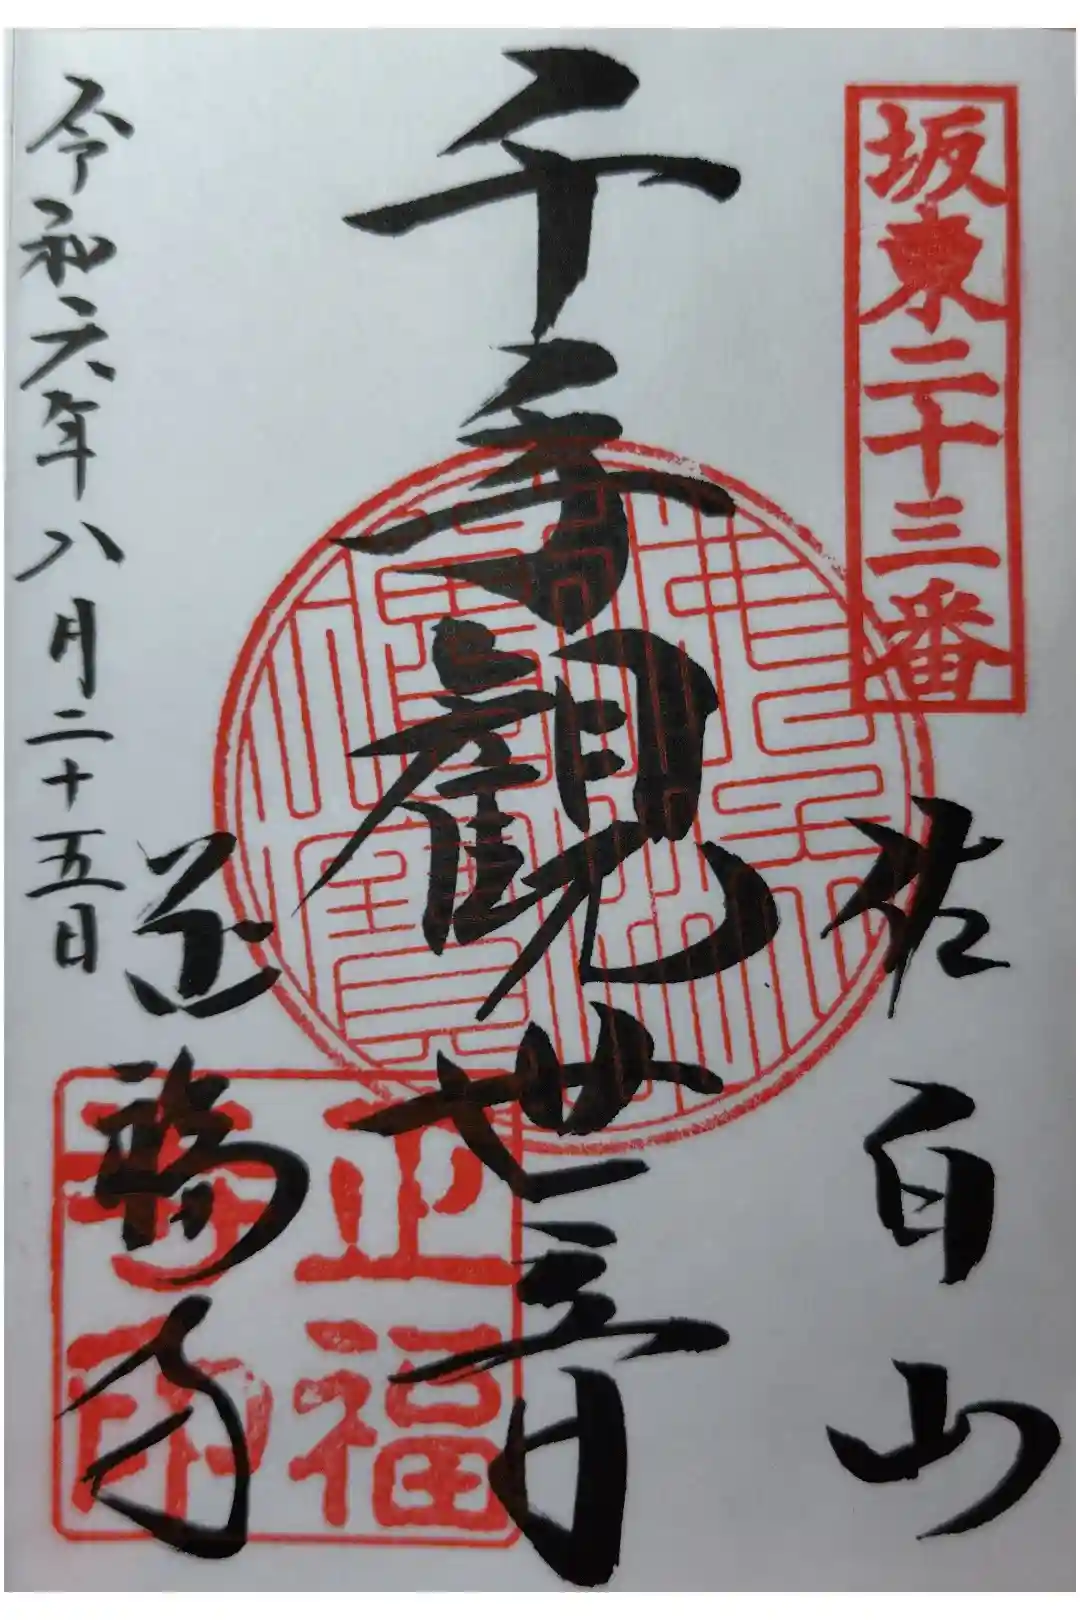 坂東二十三番
佐白山
千手觀世音
正福寺印
正福寺
令和六年八月二十五日